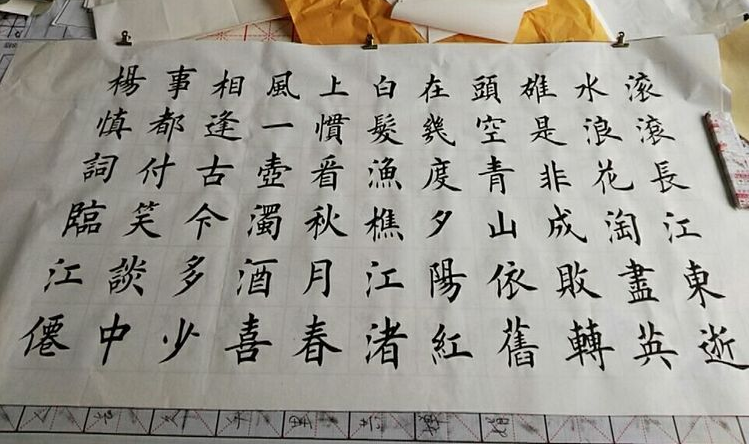 滚滾長江東逝
水浪花淘盡英
雄是非成敗轉
頭空青山依舊
在幾度夕陽紅
白髮漁樵江渚
上慣看秋月春
風一壺濁酒喜
相逢古今多少
事都付笑談中
楊慎詞臨江僊